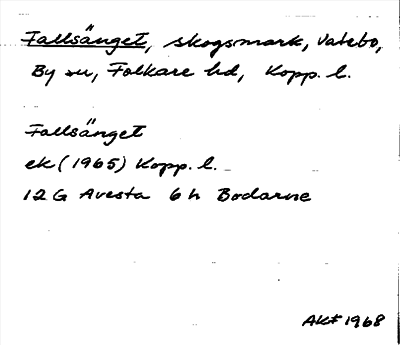 Fallsänget, skogsmark, Valebo,
By sn, Folkare hd, Kopp. l.
Fallsänget
ek (1965) Kopp. l.
12 G Avesta 6 h Bodarne
1968